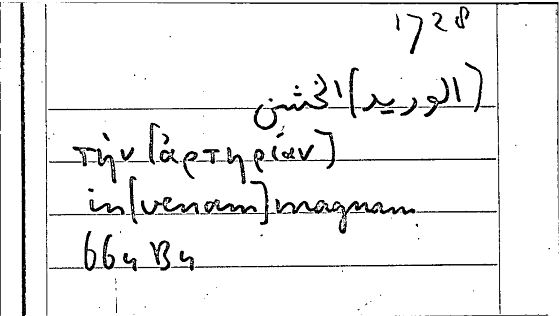 1728
(الوريد) الخشن
τὴν [ἀρτηρίαν]
in [venam] magnam
664 B4